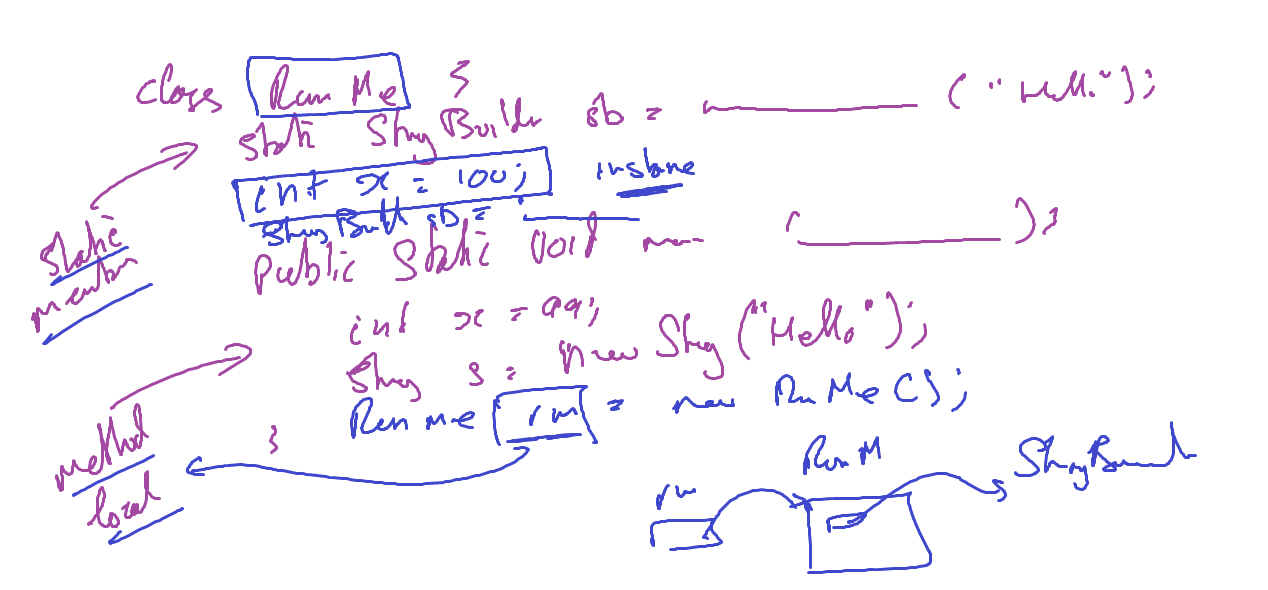 class Run Me {
static StringBuilder sb = ("Hello");
int x = 100; instance
StringBuild sb =
static member
public static void main ( );
int x = 99;
String s = new String("Hello");
Run Me rm = new RunMe();
}
method local
RunM
StringBuild
rm